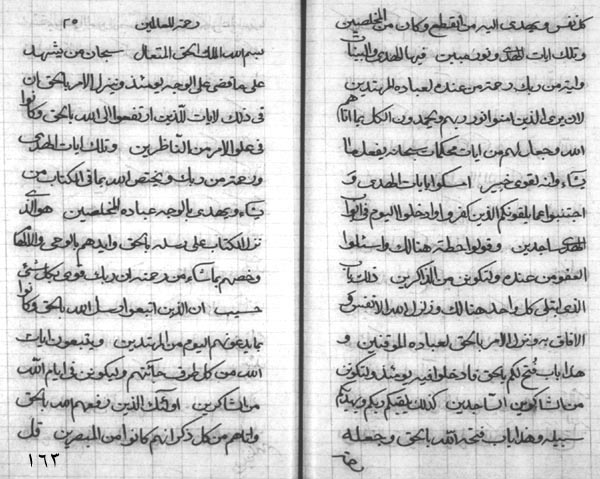 كل نفس و يهدى اليه من انقطع وكان من المخلصين
وتلك ايات الهدى و نور مبين فيها الهدى و البينات
و ايتر من ربك رحمة من عنده لعباده المهتدين
لان يروى الذين امنوا نور ربهم و يحمدون الكل بما اتاهم
الله و جعل لهم من ايات محكمات سبحانه يفعل ما
يشاء و انه لقوى خبير امسكوا بايات الهدى و
اجتنبوا عما يلقونكم الذين كفروا و ادخلوا اليوم فى ابواب
الهدى ساجدين و قولوا حطة هنالك و اسئلوا
العفو من عنده و لتكونن من الذاكرين ذلك باب
الذى ابتلى كل واحد هنالك و نزل الله الانفس و
الافاق به و نزل الامر بالحق لعباده الموقنين و
هذا باب فتح لكم بالحق فادخلوا فيه يومئذ و لتكونن
من الشاكرين الساجدين كذلك يلقيكم ربكم و يهديكم
سبيله و هذا باب فتحه الله بالحق و جعله
رحمة للعالمين ٢٥
بسم الله الملك الحق المتعال سبحان من يشهد
على ما قضى على الوجه يومئذ و نزل الامر بالحق ان
فى ذلك لايات للذين ارتفعوا الى الله بالحق و كانوا
فى علو الامر من الناظرين و تلك ايات الهدى
و رحمة من ربك و يختص الله بما فى الكتاب من
يشاء و يهدى بالوجه عباده المخلصين هو الذى
نزل الكتاب على رسله بالحق و ايدهم بالوحى و الالهام
و خصهم بما شاء من رحمته ان ربك قوى بكل شئ
حسيب ان الذين اتبعوا رسل الله بالحق و كانوا
بما يدعونهم اليوم من المهتدين و يتبعون ايات
الله من كل طرف حائتهم و ليكونن فى ايام الله
من الشاكرين اولئك الذين رفعهم الله بالحق
و اتاهم من كل ذكر انهم كانوا من المبصرين قل
١٦٣